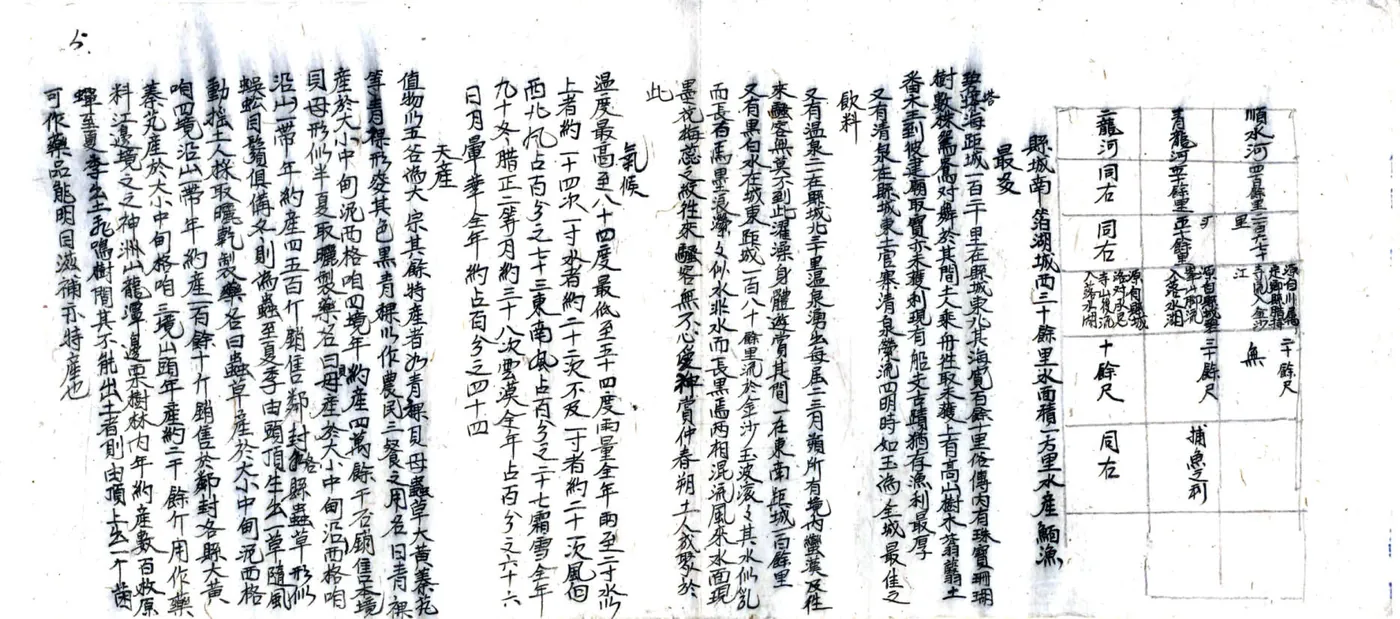 順水河 四百餘里 二百六七十里 二十餘尺
源自川屬定鄉縣瞻㨂寺流入金沙江 無
青龍河 五十餘里 平五十餘里 二十餘尺
源自縣城 山脚流入落水洞 捕魚之利
二龍河 同右 同右 十餘尺 同右
源自縣城 寺山後流入落水洞
縣城南箔湖城西三十餘里水面積一方里水產鯝漁
最多
碧塔海距城一百二十里在縣城東北其海寬百餘里俗傳內有珠寶珊瑚
樹數株鴛鴦對游於其間土人乘舟往取未獲上有高山樹木蓊翳土
番木王到彼建廟取寶亦未獲利現有船支古蹟猶存漁利最厚
又有清泉在縣城東土官寨清泉縈流四明時如玉為全城最佳之
飲料
又有溫泉二在縣城北三十里溫泉湧出每屆二三月頭所有境內蠻漢及往
來騷客無莫不到此濯澡身體遊賞其間一在東南距城一百餘里
又有黑白水在城東距城一百八十餘里流於金沙玉波滾々其水似乳
而長白焉墨浪瀠々似水非水而長黑焉兩相混流風來水面現
墨花梅蕊之紋往來騷客無不心愛神賞仲春朔土人咸聚於
此
氣候
溫度最高至八十四度最低至五十四度雨量全年雨至二寸水以
上者約一十四次一寸水者約二十二次不及一寸者約二十一次風向
西北風占百分之七十三東南風占百分之二十七霜雪全年
九十冬腊正二等月約三十八次雲漠全年占百分之六十六
日月暈華全年約占百分之四十四
天產
值物以五谷為大宗其餘特產者為青稞貝母蟲草大黃蓁艽
等青稞形姿其色黑青稞以作農民三餐之用名曰青稞
產於大小中甸泥西格咱四境年約產四萬餘千石銷售本境
貝母形似半夏取曬製藥名曰母產於大小中甸沿西格咱
沿山一帶年約產四五百斤銷售鄰封各縣蟲草形似
蜈蚣目鬚俱備冬則為蟲至夏季由頭頂生出一草隨風
動搖土人採取曬乾製藥名曰蟲草產於大小中甸泥西格
咱四境沿山一帶年約產一百餘十斤銷售於鄰封各縣大黃
蓁艽產於大小中甸格咱三境山頭年產約二千餘斤用作藥
料江邊境之之神洲山龍潭邊栗樹林內年約產數百枚原
蟬至夏季生土飛鳴樹間其不能出土者則由頂上生一个菌
可作藥品能明目滋補亦特產也
5.